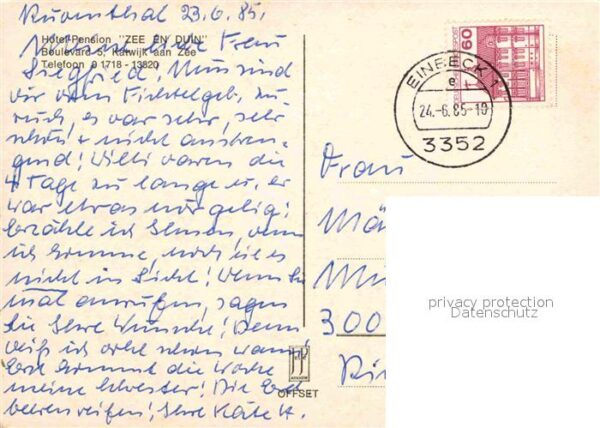 23.6.85.
Hotel-Pension "ZEE EN DUIN"
Boulevard 5, Katwijk aan Zee
Telefoon 0 1718 - 13820
Frau
Siegfried! Nun sind
wir vom Fichtelgeb. zu
rück, es war sehr, sehr
schön! + nicht anstren-
gend! Willi waren die
4 Tage zu lange u. er
war etwas
erzähle ich Ihnen, wenn
ich komme, noch ist es
nicht in Sicht! Wenn Sie
mal anrufen, sagen
Sie Ihre Wünsche! Dann
weiß ich schon wann!
Erst kommt die Woche
meine Schwester! Die Erd
beeren reifen! Ihre Käte H.
60
EINBECK 1
e
24.-6.85-10
3352
Frau
Mä
Mü
300
Ri
privacy protection
Datenschutz
OFFSET